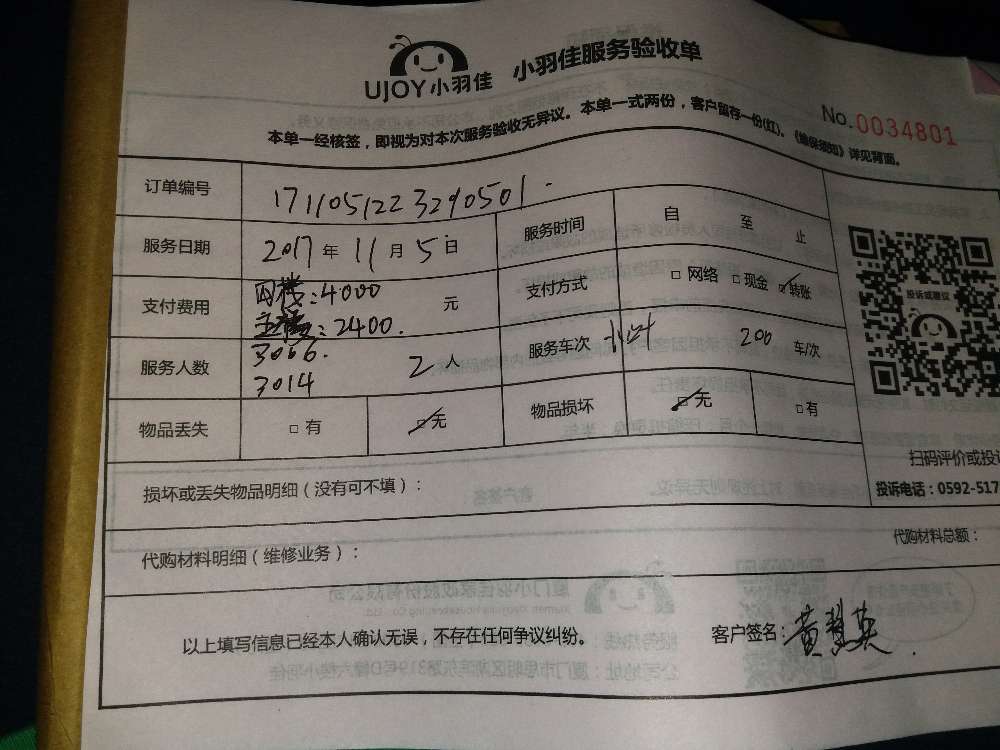 UJOY小羽佳 小羽佳服务验收单
No.0034801
本单一经核签，即视为对本次服务验收无异议。本单一式两份，客户留存一份(红)。《维保须知》详见背面。
订单编号 1711051223290501
服务日期 2017年11月5日 服务时间 自 至 止
支付费用 :4000 元 支付方式 □网络 □现金 ☑转账
:2400.
服务人数 3066. 2人 服务车次 200 车/次
3014
物品丢失 □有 ☑无 物品损坏 ☑无 □有
投诉或建议
扫码评价或投诉
投诉电话：0592-517
损坏或丢失物品明细（没有可不填）：
代购材料明细（维修业务）： 代购材料总额：
以上填写信息已经本人确认无误，不存在任何争议纠纷。 客户签名：黄慧英